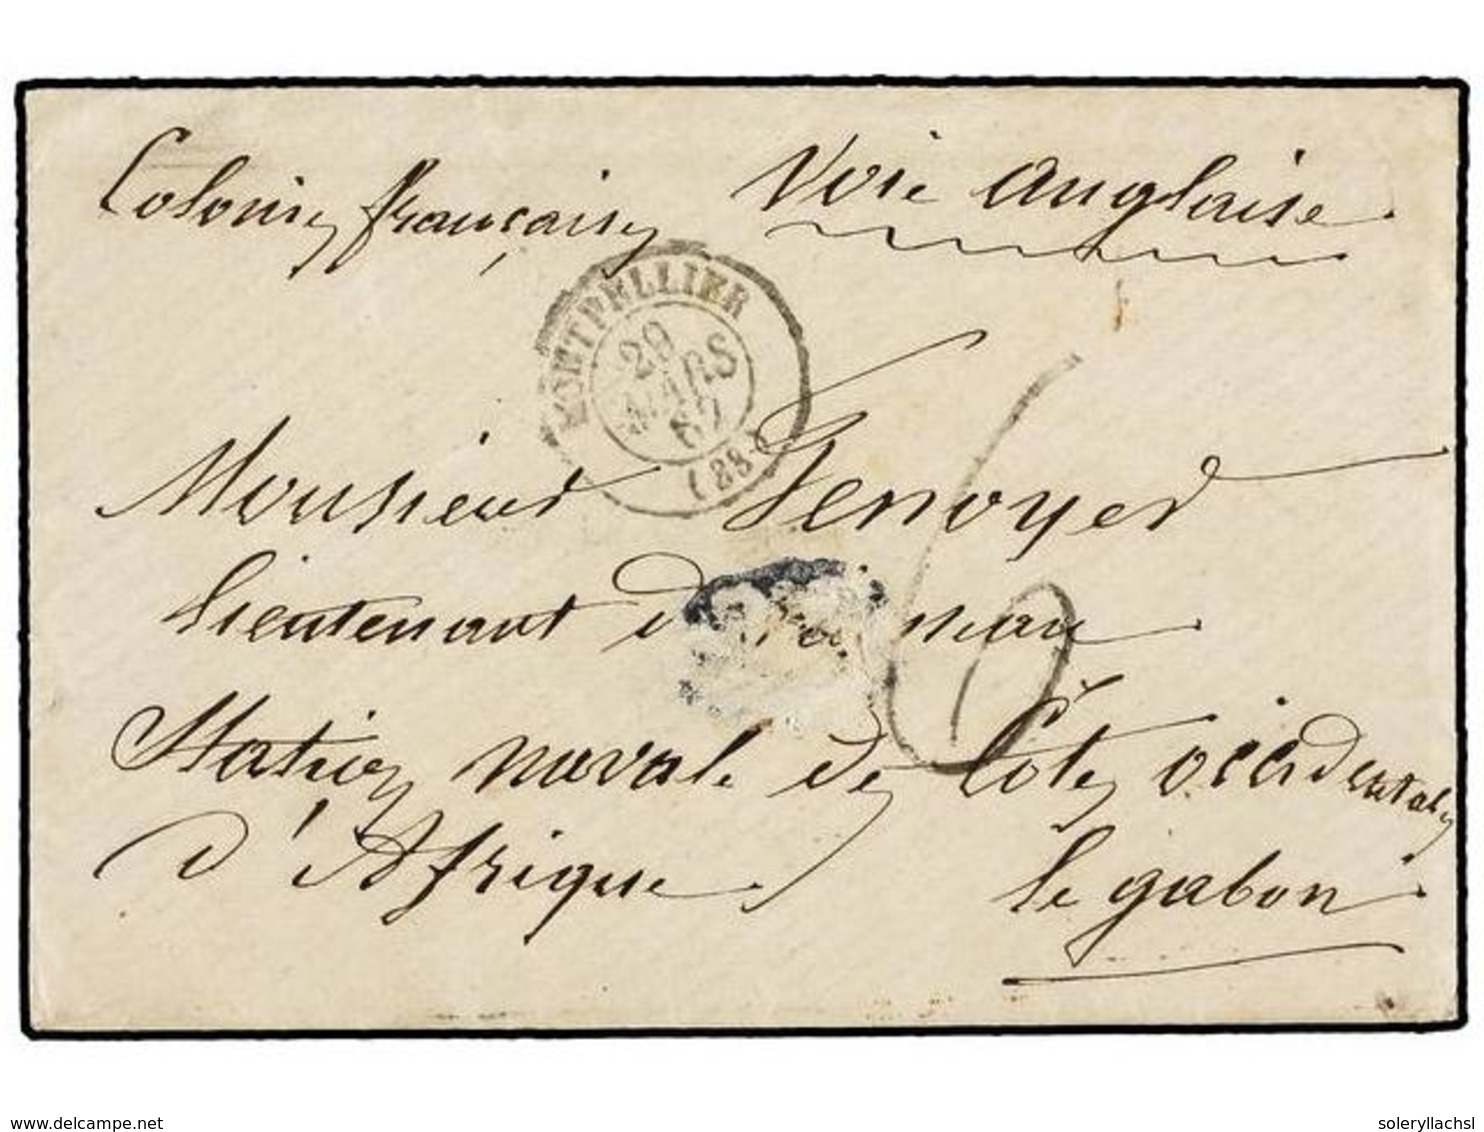 Colonies françaises
Voie anglaise
MONTPELLIER
29
MARS
67
(33)
Monsieur Genoyer
lieutenant de vaisseau
Station navale des Côtes occidentales
d'Afrique.
le gabon
6
delcampe.net
soleryllachsl